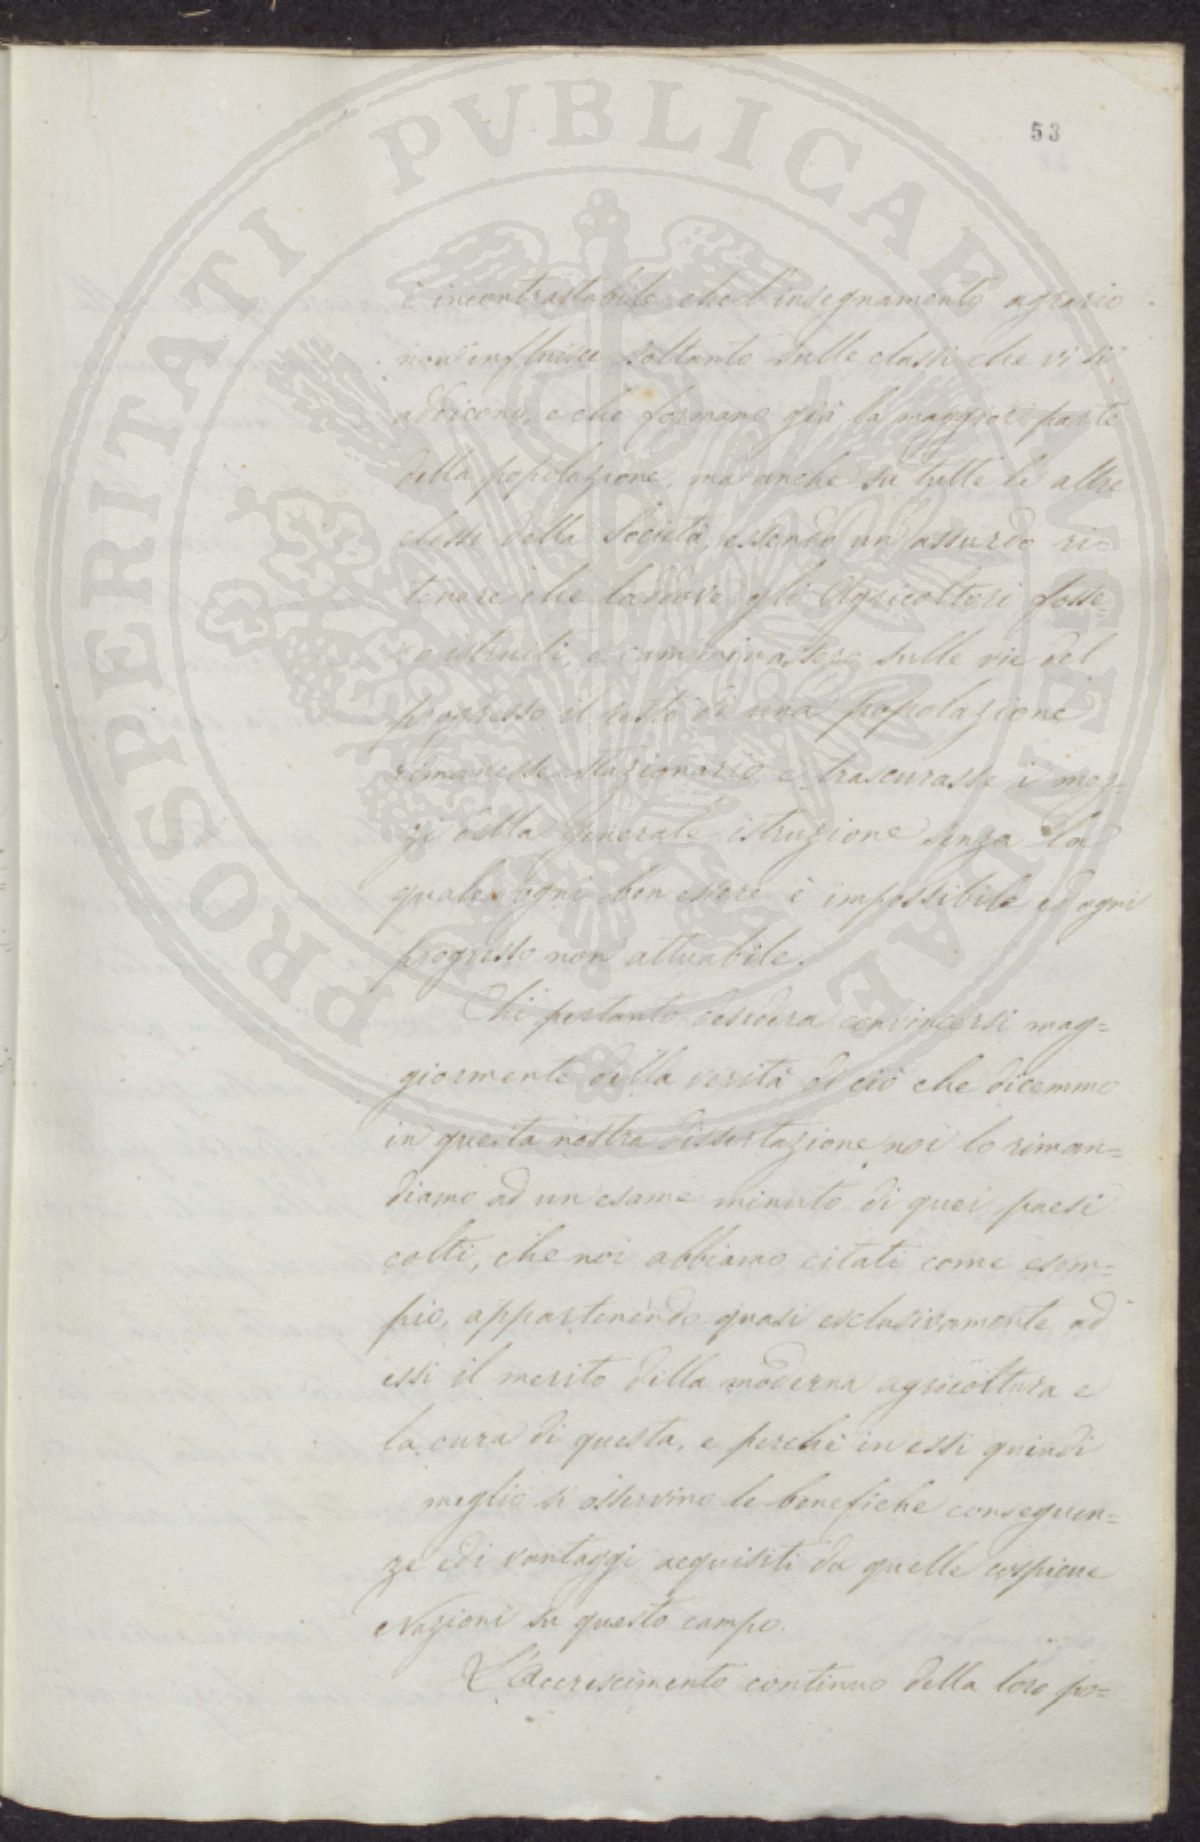 53
PROSPERITATI PVBLICAE AVGENDAE
è incontrastabile che l'insegnamento agrario
non influisce soltanto sulle classi che vi si
addicono, e che formano già la maggior parte
della popolazione, ma anche su tutte le altre
classi della Società, essendo un assurdo ri=
tenere che laddove gli Agricoltori fosse=
ro istruiti, e camminassero sulle vie del
progresso il resto di una popolazione
rimanesse stazionario, e trascurasse i mez=
zi della generale istruzione senza la
quale ogni ben essere è impossibile ed ogni
progresso non attuabile.
Chi pertanto desidera convincersi mag=
giormente della verità di ciò che dicemmo
in questa nostra dissertazione noi lo riman=
diamo ad un esame minuto di quei paesi
colti, che noi abbiamo citati come esem=
pio, appartenendo quasi esclusivamente ad
essi il merito della moderna agricoltura e
la cura di questa, e perchè in essi quindi
meglio si osservino le benefiche conseguen=
ze edi vantaggi acquisiti da quelle cospicue
Nazioni su questo campo.
L'Accrescimento continuo della loro po=